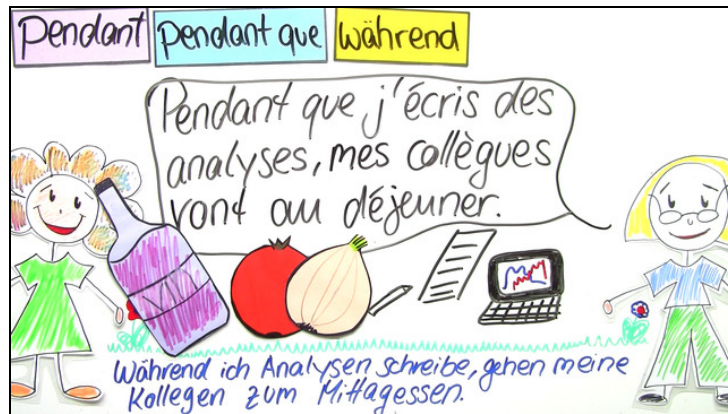 Pendant Pendant que Während
Pendant que j'écris des
analyses, mes collègues
vont au déjeuner.
VIN
Während ich Analysen schreibe, gehen meine
Kollegen zum Mittagessen.